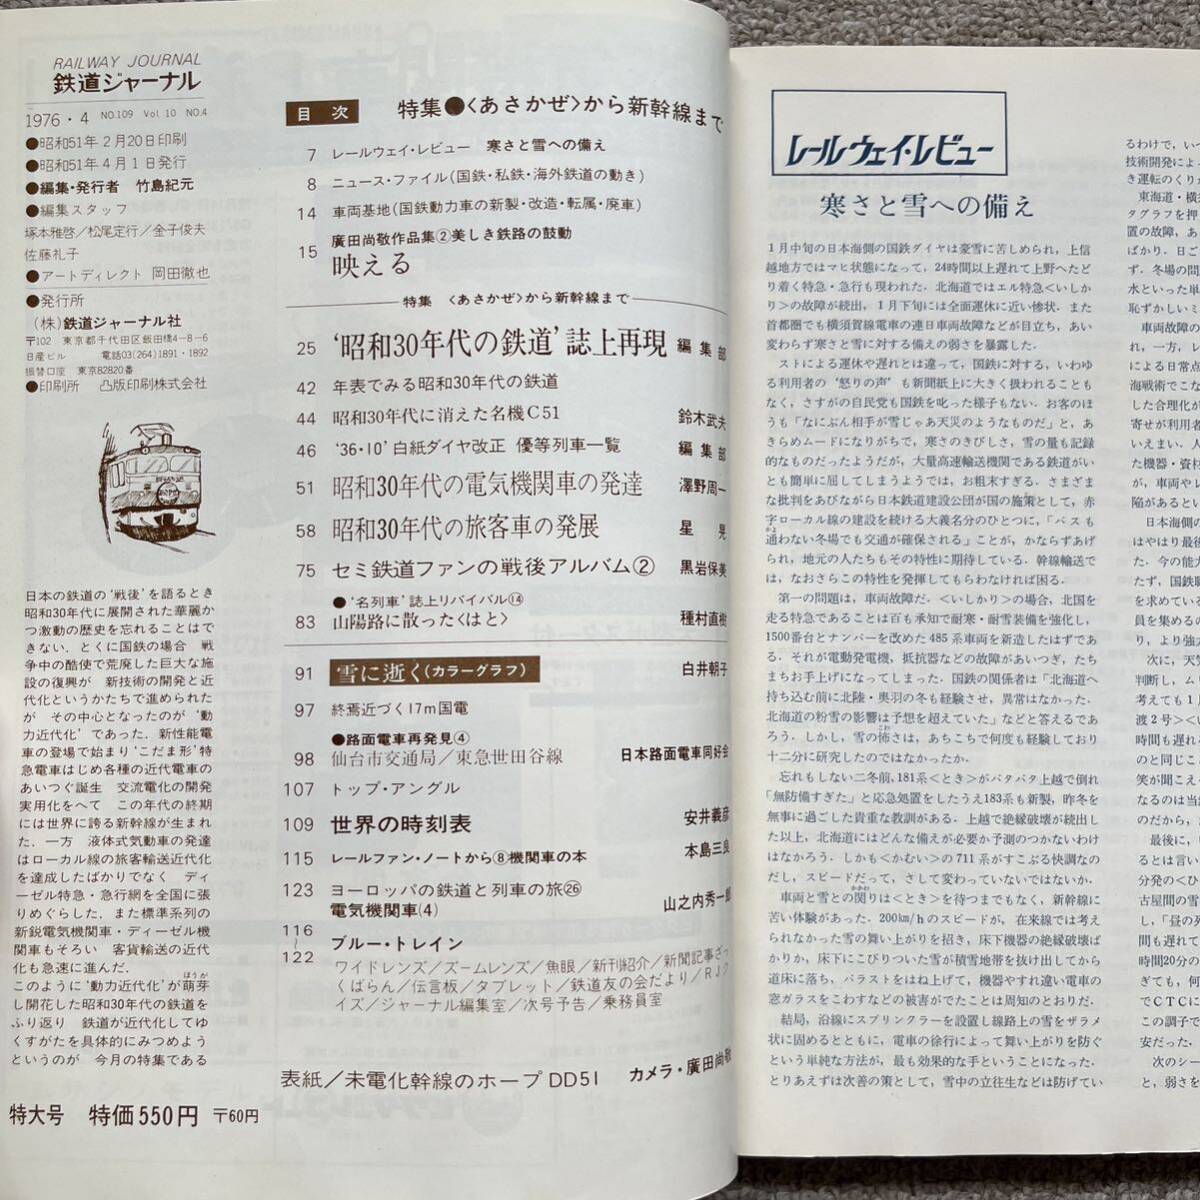 RAILWAY JOURNAL
鉄道ジャーナル
1976・4 NO.109 Vol 10 NO.4
●昭和51年2月20日印刷
●昭和51年4月1日発行
●編集・発行者 竹島紀元
●編集スタッフ
塚本雅啓／松尾定行／金子俊夫
佐藤礼子
●アートディレクト 岡田徹也
●発行所
(株)鉄道ジャーナル社
〒102 東京都千代田区飯田橋4−8−6
日産ビル 電話03(264)1891・1892
振替口座 東京82820番
●印刷所 凸版印刷株式会社
日本の鉄道の‘戦後’を語るとき
昭和30年代に展開された華麗か
つ激動の歴史を忘れることはで
きない．とくに国鉄の場合 戦
争中の酷使で荒廃した巨大な施
設の復興が 新技術の開発と近
代化というかたちで進められた
が その中心となったのが‘動
力近代化’であった．新性能電
車の登場で始まり‘こだま形’特
急電車はじめ各種の近代電車の
あいつぐ誕生 交流電化の開発
実用化をへて この年代の終期
には世界に誇る新幹線が生まれ
た．一方 液体式気動車の発達
はローカル線の旅客輸送近代化
を達成したばかりでなく ディ
ーゼル特急・急行網を全国に張
りめぐらした．また標準系列の
新鋭電気機関車・ディーゼル機
関車もそろい 客貨輸送の近代
化も急速に進んだ．
このように‘動力近代化’が萌芽
ほうが
し開花した昭和30年代の鉄道を
ふり返り 鉄道が近代化してゆ
くすがたを具体的にみつめよう
というのが 今月の特集である
特大号 特価550円 〒60円
目次 特集●〈あさかぜ〉から新幹線まで
7 レールウェイ・レビュー 寒さと雪への備え
8 ニュース・ファイル(国鉄・私鉄・海外鉄道の動き)
14 車両基地(国鉄動力車の新製・改造・転属・廃車)
15 廣田尚敬作品集②美しき鉄路の鼓動
映える
特集 〈あさかぜ〉から新幹線まで
25 ‘昭和30年代の鉄道’誌上再現 編集部
42 年表でみる昭和30年代の鉄道
44 昭和30年代に消えた名機C51 鈴木武夫
46 ‘36・10’白紙ダイヤ改正 優等列車一覧 編集部
51 昭和30年代の電気機関車の発達 澤野周一
58 昭和30年代の旅客車の発展 星 晃
75 セミ鉄道ファンの戦後アルバム② 黒岩保美
●‘名列車’誌上リバイバル⑭
83 山陽路に散った〈はと〉 種村直樹
91 雪に逝く(カラーグラフ) 白井朝子
97 終焉近づく17m国電
●路面電車再発見④
98 仙台市交通局／東急世田谷線 日本路面電車同好会
107 トップ・アングル
109 世界の時刻表 安井義彦
115 レールファン・ノートから⑧機関車の本 本島三良
123 ヨーロッパの鉄道と列車の旅㉖
電気機関車(4) 山之内秀一郎
116
〜
122 ブルー・トレイン
ワイドレンズ／ズームレンズ／魚眼／新刊紹介／新聞記事ざっ
くばらん／伝言板／タブレット／鉄道友の会だより／RJク
イズ／ジャーナル編集室／次号予告／乗務員室
表紙／未電化幹線のホープ DD51 カメラ・廣田尚敬
レールウェイ・レビュー
寒さと雪への備え
1月中旬の日本海側の国鉄ダイヤは豪雪に苦しめられ，上信
越地方ではマヒ状態になって，24時間以上遅れて上野へたど
り着く特急・急行も現われた．北海道ではエル特急＜いしか
り＞の故障が続出，1月下旬には全面運休に近い惨状．また
首都圏でも横須賀線電車の連日車両故障などが目立ち，あい
変わらず寒さと雪に対する備えの弱さを暴露した．
ストによる運休や遅れとは違って，国鉄に対する，いわゆ
る利用者の‘怒りの声’も新聞紙上に大きく扱われることも
なく，さすがの自民党も国鉄を叱った様子もない．お客のほ
うも「なにぶん相手が雪じゃあ天災のようなものだ」と，あ
きらめムードになりがちで，寒さのきびしさ，雪の量も記録
的なものだったようだが，大量高速輸送機関である鉄道がい
とも簡単に屈してしまうようでは，お粗末すぎる．さまざま
な批判をあびながら日本鉄道建設公団が国の施策として，赤
字ローカル線の建設を続ける大義名分のひとつに，「バスも
通わない冬場でも交通が確保される」ことが，かならずあげ
られ，地元の人たちもその特性に期待している．幹線輸送で
は，なおさらこの特性を発揮してもらわなければ困る．
第一の問題は，車両故障だ．＜いしかり＞の場合，北国を
走る特急であることは百も承知で耐寒・耐雪装備を強化し，
1500番台とナンバーを改めた485系車両を新造したはずであ
る．それが電動発電機，抵抗器などの故障があいつぎ，たち
まちお手上げになってしまった．国鉄の関係者は「北海道へ
持ち込む前に北陸・奥羽の冬も経験させ，異常はなかった．
北海道の粉雪の影響は予想を超えていた」などと答えるであ
ろう．しかし，雪の怖さは，あちこちで何度も経験しており
十二分に研究したのではなかったか．
忘れもしない二冬前，181系＜とき＞がバタバタ上越で倒れ
「無防備すぎた」と応急処置をしたうえ183系も新製，昨冬を
無事に過ごした貴重な教訓がある．上越で絶縁破壊が続出し
た以上，北海道にはどんな備えが必要か予測のつかないわけ
はなかろう．しかも＜かむい＞の711系がすこぶる快調なの
だし，スピードだって，さして変わっていないではないか．
車両と雪との関りは＜とき＞を待つまでもなく，新幹線に
苦い体験があった．200km/hのスピードが，在来線では考え
られなかった雪の舞い上がりを招き，床下機器の絶縁破壊ば
かりか，床下にこびりついた雪が積雪地帯を抜け出してから
道床に落ち，バラストをはね上げて，機器やすれ違い電車の
窓ガラスをこわすなどの被害がでたことは周知のとおりだ．
結局，沿線にスプリンクラーを設置し線路上の雪をザラメ
状に固めるとともに，電車の徐行によって舞い上がりを防ぐ
という単純な方法が，最も効果的な手ということになった．
とりあえずは次善の策として，雪中の立往生などは防げてい